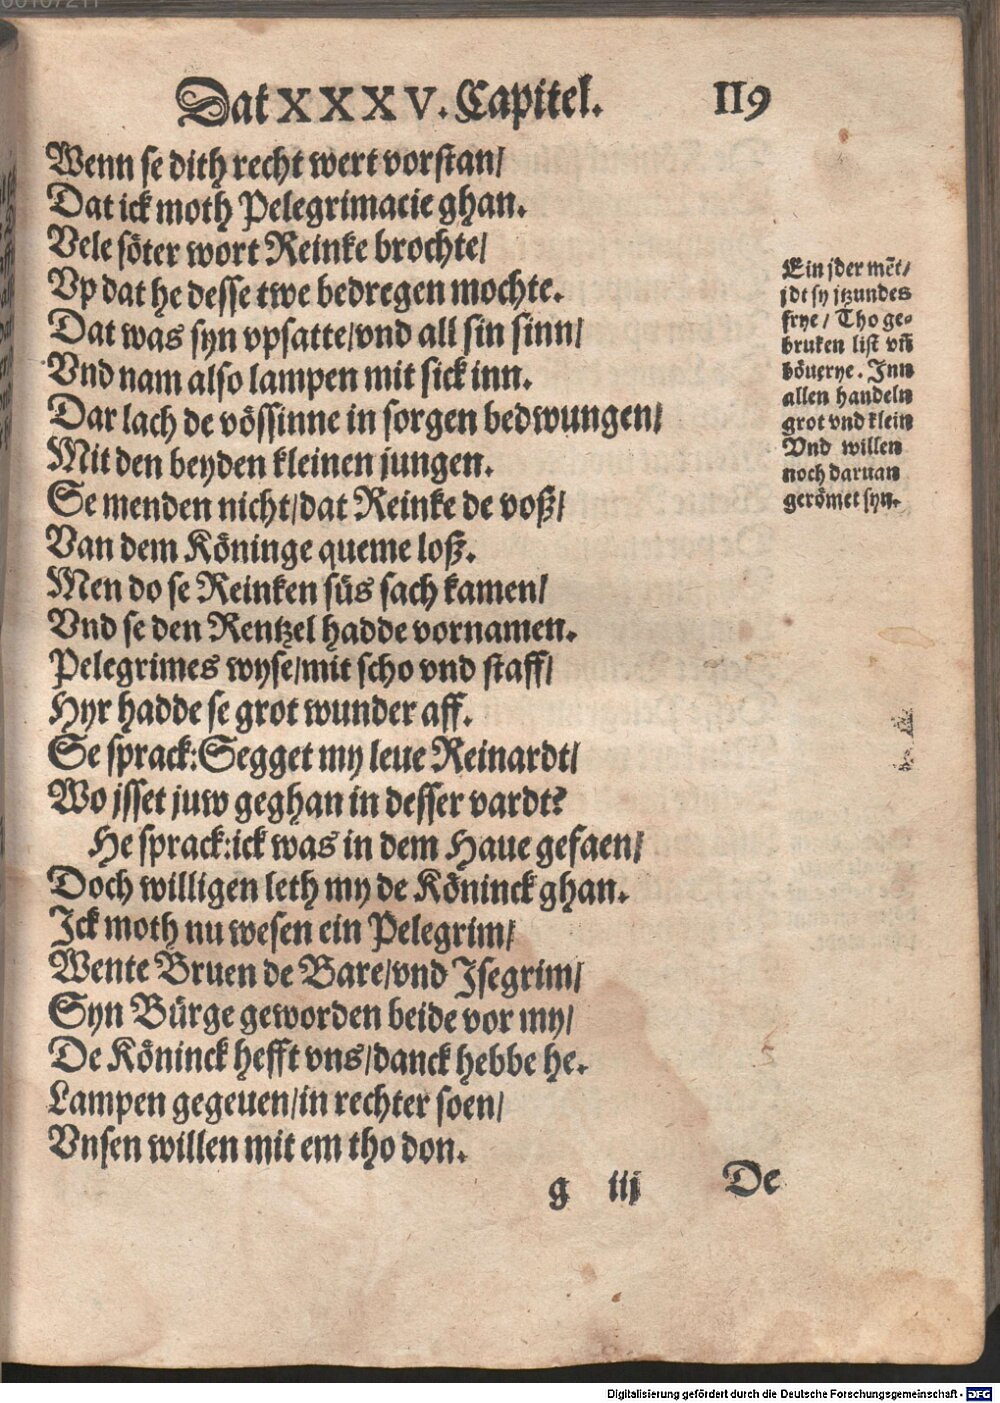 Dat XXXV. Capitel. 119
Wenn se dith recht wert vorstan/
Dat ick moth Pelegrimacie ghan.
Vele söter wort Reinke brochte/
Vp dat he desse twe bedregen mochte.
Dat was syn vpsatte/vnd all sin sinn/
Vnd nam also lampen mit sick inn.
Dar lach de vössinne in sorgen bedwungen/
Mit den beyden kleinen jungen.
Se menden nicht/dat Reinke de voß/
Van dem Köninge queme loß.
Men do se Reinken süs sach kamen/
Vnd se den Rentzel hadde vornamen.
Pelegrimes wyse/mit scho vnd staff/
Hyr hadde se grot wunder aff.
Se sprack:Segget my leue Reinardt/
Wo jsset juw geghan in desser vardt?
He sprack:ick was in dem Haue gefaen/
Doch willigen leth my de Köninck ghan.
Ick moth nu wesen ein Pelegrim/
Wente Bruen de Bare/vnd Isegrim/
Syn Bürge geworden beide vor my/
De Köninck hefft vns/danck hebbe he.
Lampen gegeuen/in rechter soen/
Vnsen willen mit em tho don.
g iij De
Ein jder mēt/
jdt sy jtzundes
frye/ Tho ge-
bruken list vñ
böuerye. Inn
allen handeln
grot vnd klein
Vnd willen
noch daruan
gerömet syn.
Digitalisierung gefördert durch die Deutsche Forschungsgemeinschaft - DFG